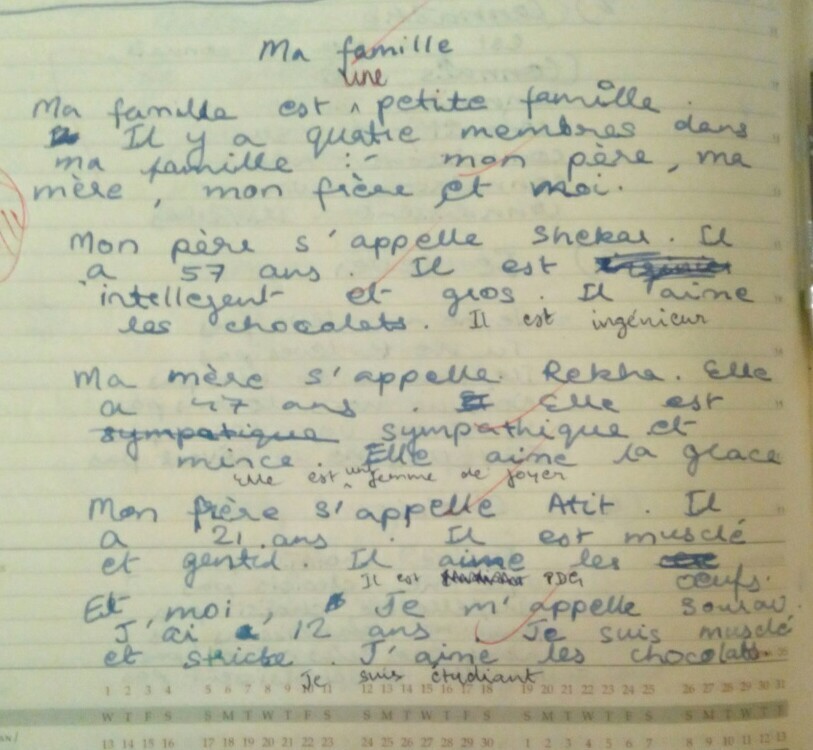 Ma famille
une
Ma famille est ^ petite famille.
Il y a quatre membres dans
ma famille :- mon père, ma
mère, mon frère et moi.
Mon père s'appelle Shekar. Il
a 57 ans. Il est
intellegent et gros. Il aime
les chocolats. Il est ingénieur
Ma mère s'appelle Rekha. Elle
a 47 ans. Elle est
sympatique sympathique et
mince. Elle aime la glace
elle est une femme de foyer
Mon frère s'appelle Atit. Il
a 21 ans. Il est musclé
et gentil. Il aime les
Il est PDG oeufs.
Et, moi, Je m'appelle Sourav.
J'ai 12 ans. Je suis musclé
et stricte. J'aime les chocolats.
Je suis étudiant
1 2 3 4 5 6 7 8 9 10 11 12 13 14 15 16 17 18 19 20 21 22 23 24 25 26 27 28 29 30 31
W T F S S M T W T F S S M T W T F S S M T W T F S S M T W T F
13 14 15 16 17 18 19 20 21 22 23 24 25 26 27 28 29 30 1 2 3 4 5 6 7 8 9 10 11 12 13